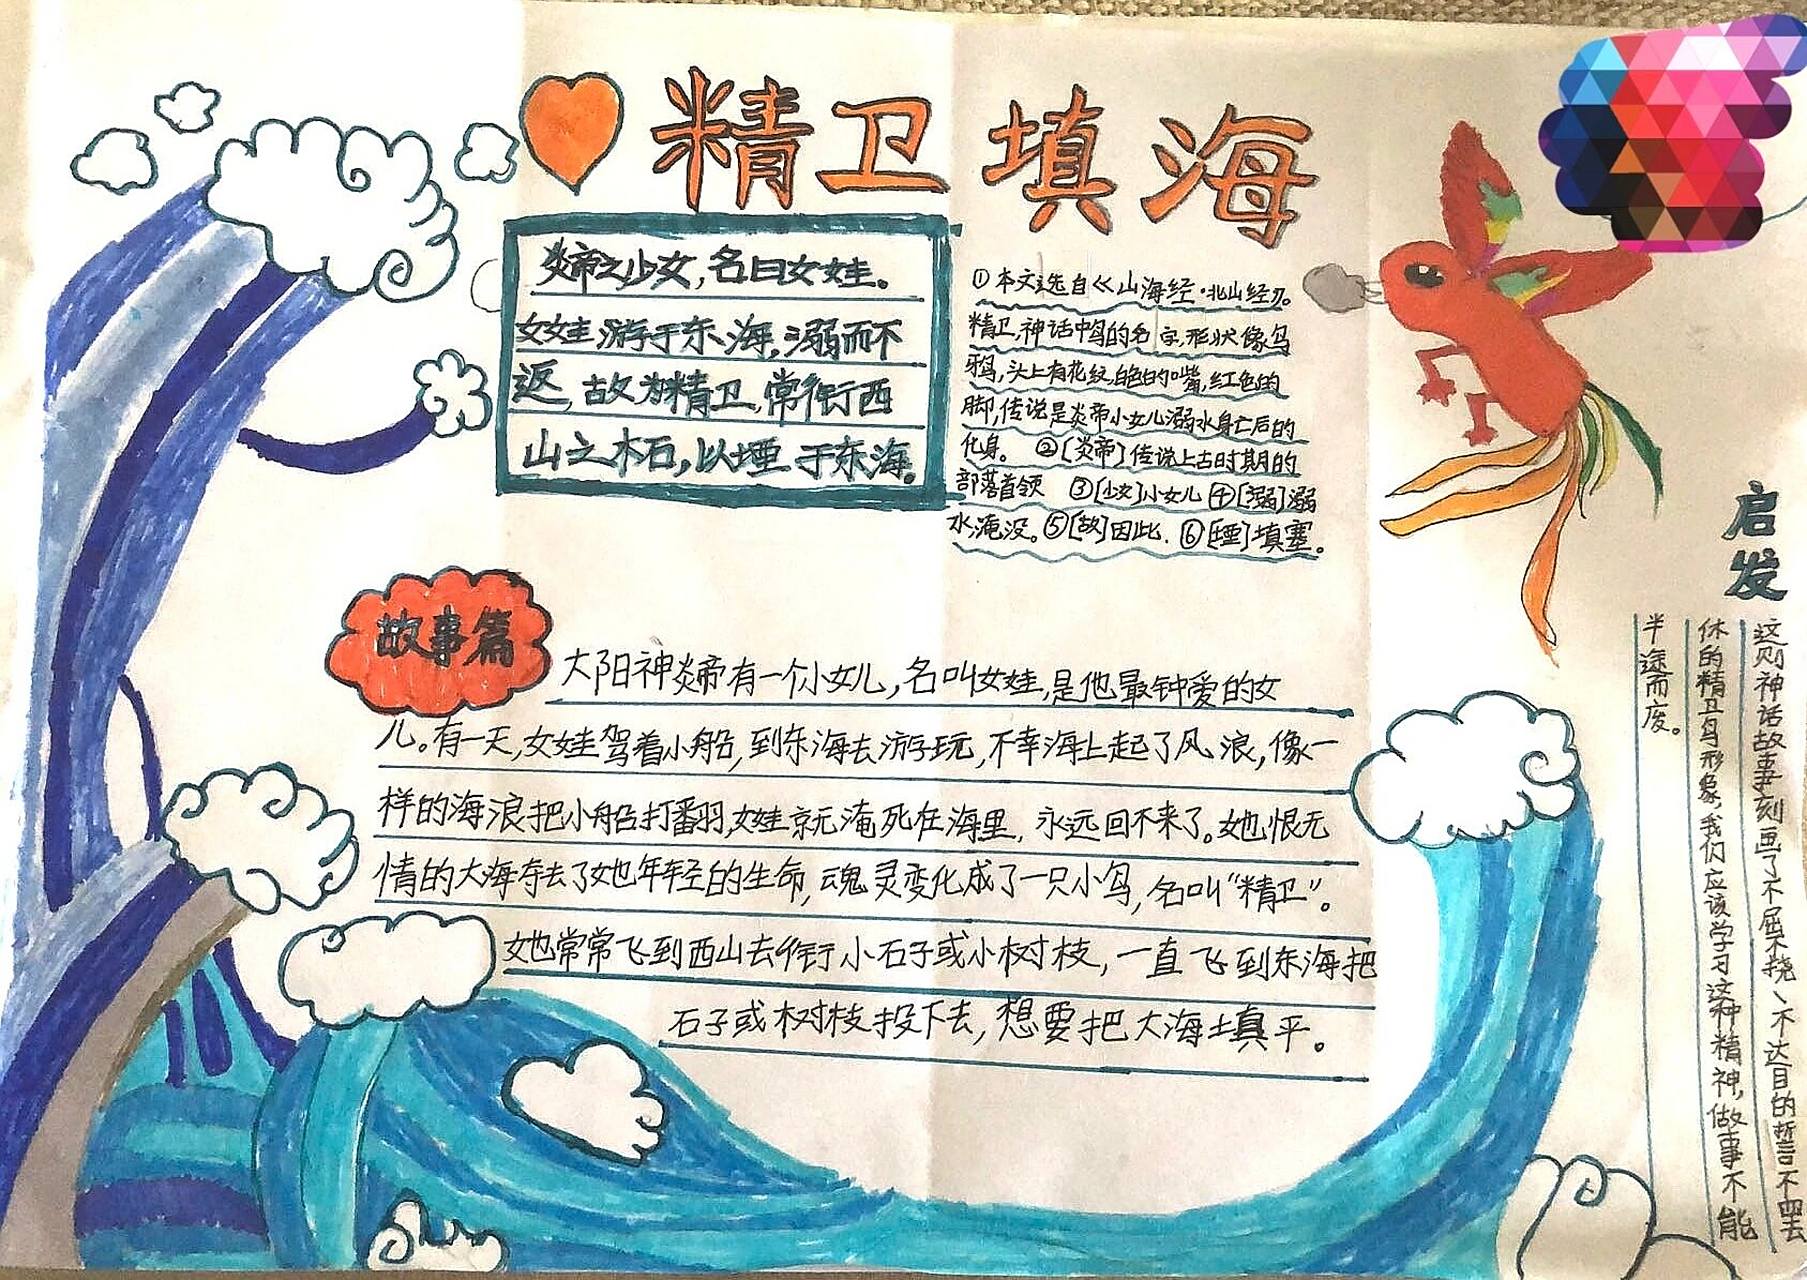 精卫填海
炎帝之少女，名曰女娃。
女娃游于东海，溺而不
返，故为精卫，常衔西
山之木石，以堙于东海。
①本文选自《山海经·北山经》。
精卫，神话中鸟的名字，形状像乌
鸦，头上有花纹，白色的嘴，红色的
脚，传说是炎帝小女儿溺水身亡后的
化身。②[炎帝]传说上古时期的
部落首领 ③[少女]小女儿 ④[溺]溺
水，淹没。⑤[故]因此. ⑥[堙]填塞。
故事篇
大阳神炎帝有一个小女儿，名叫女娃，是他最钟爱的女
儿。有一天，女娃驾着小船，到东海去游玩，不幸海上起了风浪，像一
样的海浪把小船打翻，女娃就淹死在海里，永远回不来了。她恨无
情的大海夺去了她年轻的生命，魂灵变化成了一只小鸟，名叫“精卫”。
她常常飞到西山去衔小石子或小树枝，一直飞到东海把
石子或树枝投下去，想要把大海填平。
启发
这则神话故事刻画了不屈不挠、不达目的誓不罢
休的精卫鸟形象，我们应该学习这种精神，做事不能
半途而废。